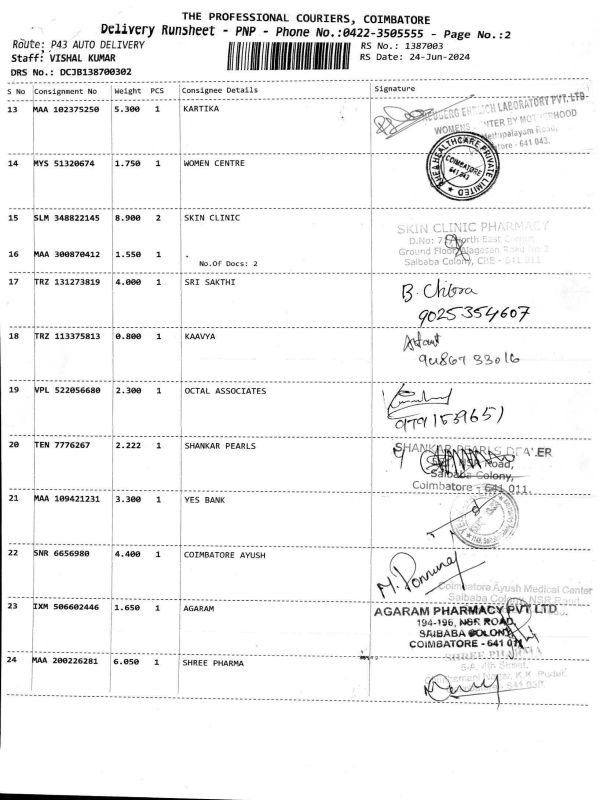 THE PROFESSIONAL COURIERS, COIMBATORE
Delivery Runsheet - PNP - Phone No.:0422-3505555 - Page No.:2
Route: P43 AUTO DELIVERY
RS No.: 1387003
Staff: VISHAL KUMAR
RS Date: 24-Jun-2024
DRS No.: DCJB138700302
S No Consignment No Weight PCS Consignee Details Signature
13 MAA 102375250 5.300 1 KARTIKA
EHRLICH LABORATORY PVT.LTD.
WOMENS CENTER BY MOTHERHOOD
Mettupalayam Road,
641 043.
14 MYS 51320674 1.750 1 WOMEN CENTRE
RHEA HEALTHCARE PRIVATE LIMITED
COIMBATORE
641 043
15 SLM 348822145 8.900 2 SKIN CLINIC
SKIN CLINIC PHARMACY
D.No: North East Corner,
Ground Floor, Alagesan Road No:2
Saibaba Colony, CBE - 641 011
16 MAA 300870412 1.550 1 .
No.Of Docs: 2
17 TRZ 131273819 4.000 1 SRI SAKTHI
B. Chitra
9025354607
18 TRZ 113375813 0.800 1 KAAVYA
33016
19 VPL 522056680 2.300 1 OCTAL ASSOCIATES
9791539651
20 TEN 7776267 2.222 1 SHANKAR PEARLS
SHANKAR PEARLS DEALER
Road,
Saibaba Colony,
Coimbatore - 641 011.
21 MAA 109421231 3.300 1 YES BANK
22 SNR 6656980 4.400 1 COIMBATORE AYUSH
Coimbatore Ayush Medical Center
Saibaba Colony, NSR Road
23 IXM 506602446 1.650 1 AGARAM
AGARAM PHARMACY PVT LTD
194-196, NSR ROAD,
SAIBABA COLONY
COIMBATORE - 641 011
24 MAA 200226281 6.050 1 SHREE PHARMA
SHREE PHARMA
5-A, 4th Street,
Nagar, K.K. Pudur,